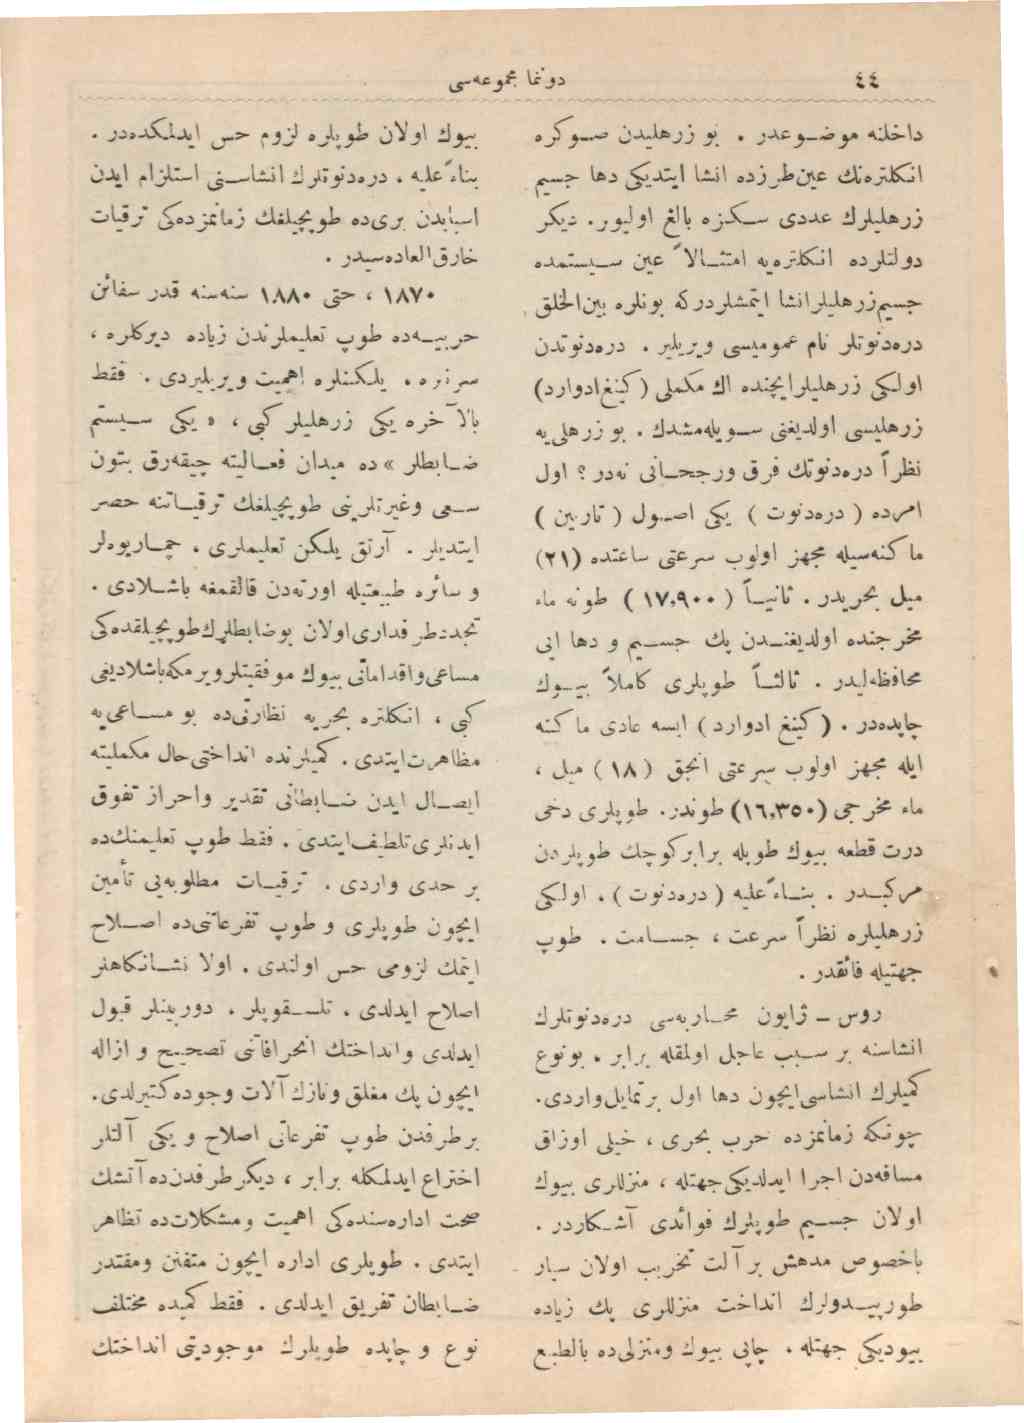 ٤٤
دونما مجموعه‌سی
داخلنه موضـوعدر . بو زرهلیدن صـوکره
انکلتره‌نك عین‌طرزده انشا ایتدیکی دها جسیم
زرهلیلرك عددی سـکـزه بالغ اولیور. دیکر
دولتلرده انـکلتره‌یه امتثـالاً عین سـیستمده
جسیم‌زرهلیلرانشا ایتمشلردرکه بونلره بین‌الخلق
دره‌دنوتلر نام عمومیسی ویریلیر . دره‌دنوتدن
اولـکی زرهلیلرایچنده اك مکملی (کینغ‌ادوارد)
زرهلیسی اولدیغنی سـویله‌مشدك . بو زرهلی‌یه
نظراً دره‌دنوتك فرق ورجحـانی نه‌در ؟ اول
امرده ( دره‌دنوت ) یکی اصـول ( تاربین )
ماکنه‌سیله مجهز اولوب سرعتی ساعتده (٢١)
میل بحریدر . ثانیـاً ( ١٧,٩٠٠ ) طونه ماء
مخرجنده اولدیغنـدن پك جسـیم و دها ایی
محافظه‌لیدر . ثالثـاً طوپلری کاملاً بیـوك
چاپده‌در . (کینغ ادوارد) ایسه عادی ماکنه
ایله مجهز اولوب سرعتی آنجق (١٨) میل ،
ماء مخرجی (١٦,٣٥٠) طوندر. طوپلری دخی
درت قطعه بیوك طوپله برابرکوچك طوپلردن
مرکبـدر . بنـاءً‌علیه (دره‌دنوت) ، اولـکی
زرهلیلره نظراً سرعت ، جسـامت . طوپ
جهتیله فائقدر .
روس ـ ژاپون محـاربه‌سی دره‌دنوتلرك
انشاسنه بر سـبب عاجل اولمقله برابر ، بونوع
کمیلرك انشاسی‌ایچون دها اول برتمایل‌واردی.
چونکه زمانمزده حرب بحری ، خیلی اوزاق
مسافه‌دن اجرا ایدلدیکی‌جهتله ، منزللری بیوك
اولان جسـیم طوپلرك فوائدی آشـکاردر .
باخصوص مدهش برآلت تخریب اولان سیار
طورپیـدولرك انداخت منزللری پك زیاده
بیودیکی جهتله ، چاپی بیوك ومنزلی‌ده بالطبع
بیوك اولان طوپلره لزوم حس ایدلمکده‌در .
بناءً‌علیه ، دره‌دنوتلرك انشاسـنی استلزام ایدن
اسبابدن بری‌ده طوپچیلغك زمانمزده‌کی ترقیات
خارق‌العاده‌سیدر .
١٨٧٠ ، حتی ١٨٨٠ سنه‌سنه قدر سفائن
حربیـه‌ده طوپ تعلیملرندن زیاده دیرکلره ،
سرنره ، یلکنلره اهمیت ویریلیردی . فقط
بالآخره یکی زرهلیلر کبی ، « یکی سـیستم
ضـابطلر » ده میدان فعـالیته چیقه‌رق بتون
سـعی وغیرتلرینی طوپچیلغك ترقیـاتنه حصر
ایتدیلر . آرتق یلکن تعلیملری ، چمـاریوه‌لر
و سائره طبیعتیله اورته‌دن قالقمغه باشـلادی .
تجددطرفداری‌اولان بوضابطلرك‌طوپچیلقده‌کی
مساعی‌واقداماتی بیوك موفقیتلرویرمکه‌باشلادیغی
کبی ، انـکلتره بحریه نظارتی‌ده بو مسـاعی‌یه
مظاهرت‌ایتدی . کمیلرنده انداختی‌حال مکملیته
ایصـال ایدن ضـابطانی تقدیر واحراز تفوق
ایدنلری تلطیف‌ایتدی . فقط طوپ تعلیمنك‌ده
بر حدی واردی . ترقیـات مطلوبه‌یی تأمین
ایچون طوپلری و طوپ تفرعاتنی‌ده اصـلاح
ایتمك لزومی حس اولندی . اولا نشـانکاهنر
اصلاح ایدلدی ، تلسـقوپلر ، دوربینلر قبول
ایدلدی وانداختك انحرافاتنی تصحیـح و ازاله
ایچون پك مغلق ونازك آلات وجوده‌کتیرلدی.
برطرفدن طوپ تفرعاتی اصلاح و یکی آلتلر
اختراع ایدلمکله برابر ، دیکر طرفدن‌ده آتشك
صحت اداره‌سنده‌کی اهمیت ومشکلات‌ده تظاهر
ایتدی . طوپلری اداره ایچون متفنن ومقتدر
ضـابطان تفریق ایدلدی . فقط کمیده مختلف
نوع و چاپده طوپلرك موجودیتی انداختك